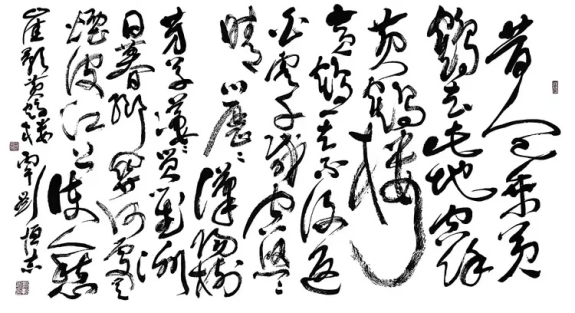 昔人已乘黄
鶴去此地空餘
黄鶴樓
黄鶴一去不復返
白雲千載空悠悠
晴川歷歷漢陽樹
芳草萋萋鸚鵡洲
日暮鄉關何處是
煙波江上使人愁
崔顥黄鶴樓 劉恒